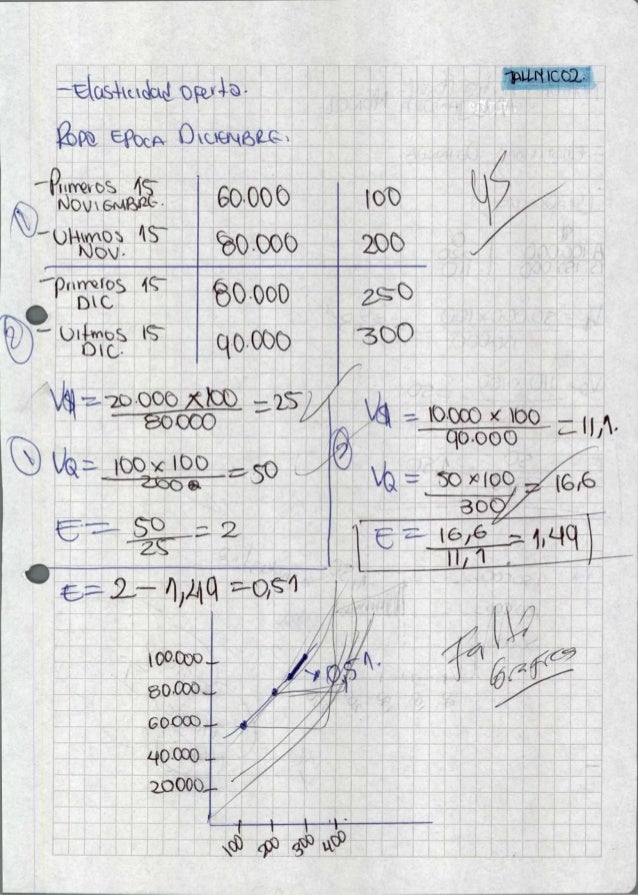 TALLNICO2
-Elasticidad oferta.
ROPA EPOCA DICIEMBRE.
-Primeros 15 NOVIEMBRE. 60.000 100
1)
-Ultimos 15 NOV. 80.000 200
45
-Primeros 15 DIC 80.000 250
2)
-Ultmos 15 DIC. 90.000 300
1)
= 20.000 x 100 / 80.000 = 25
VQ = 100 x 100 / 200 = 50
E = 50 / 25 = 2
2)
= 10.000 x 100 / 90.000 = 11,1.
VQ = 50 x 100 / 300 = 16,6
E = 16,6 / 11,1 = 1,49
E = 2 - 1,49 = 0,51
Falta
Grafica
100.000
80.000
60.000
40.000
20000
0,51.
100 200 300 400